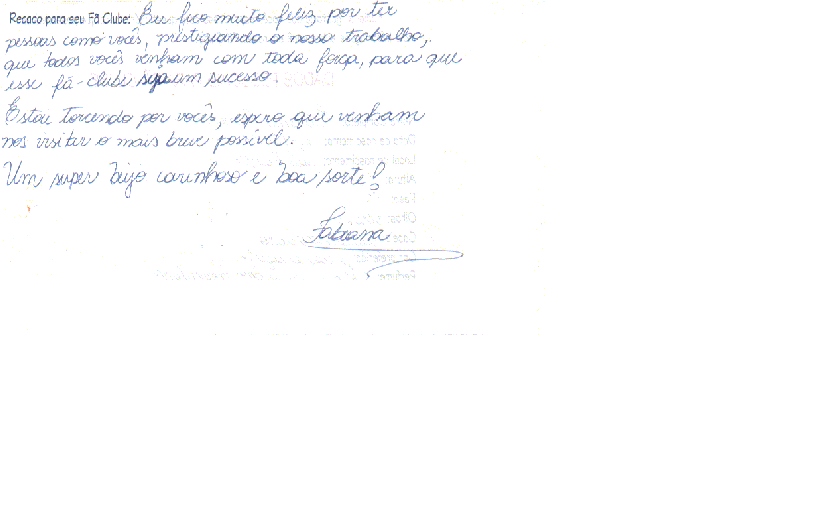 Recaco para seu Fã Clube: Eu fico muito feliz, por ter
pessoas como vocês, prestigiando o nosso trabalho,
que todos vocês venham com toda força, para que
esse fã-clube seja um sucesso.
Estou torcendo por vocês, espero que venham
nos visitar o mais breve possível.
Um super beijo carinhoso e boa sorte!
Fabiana